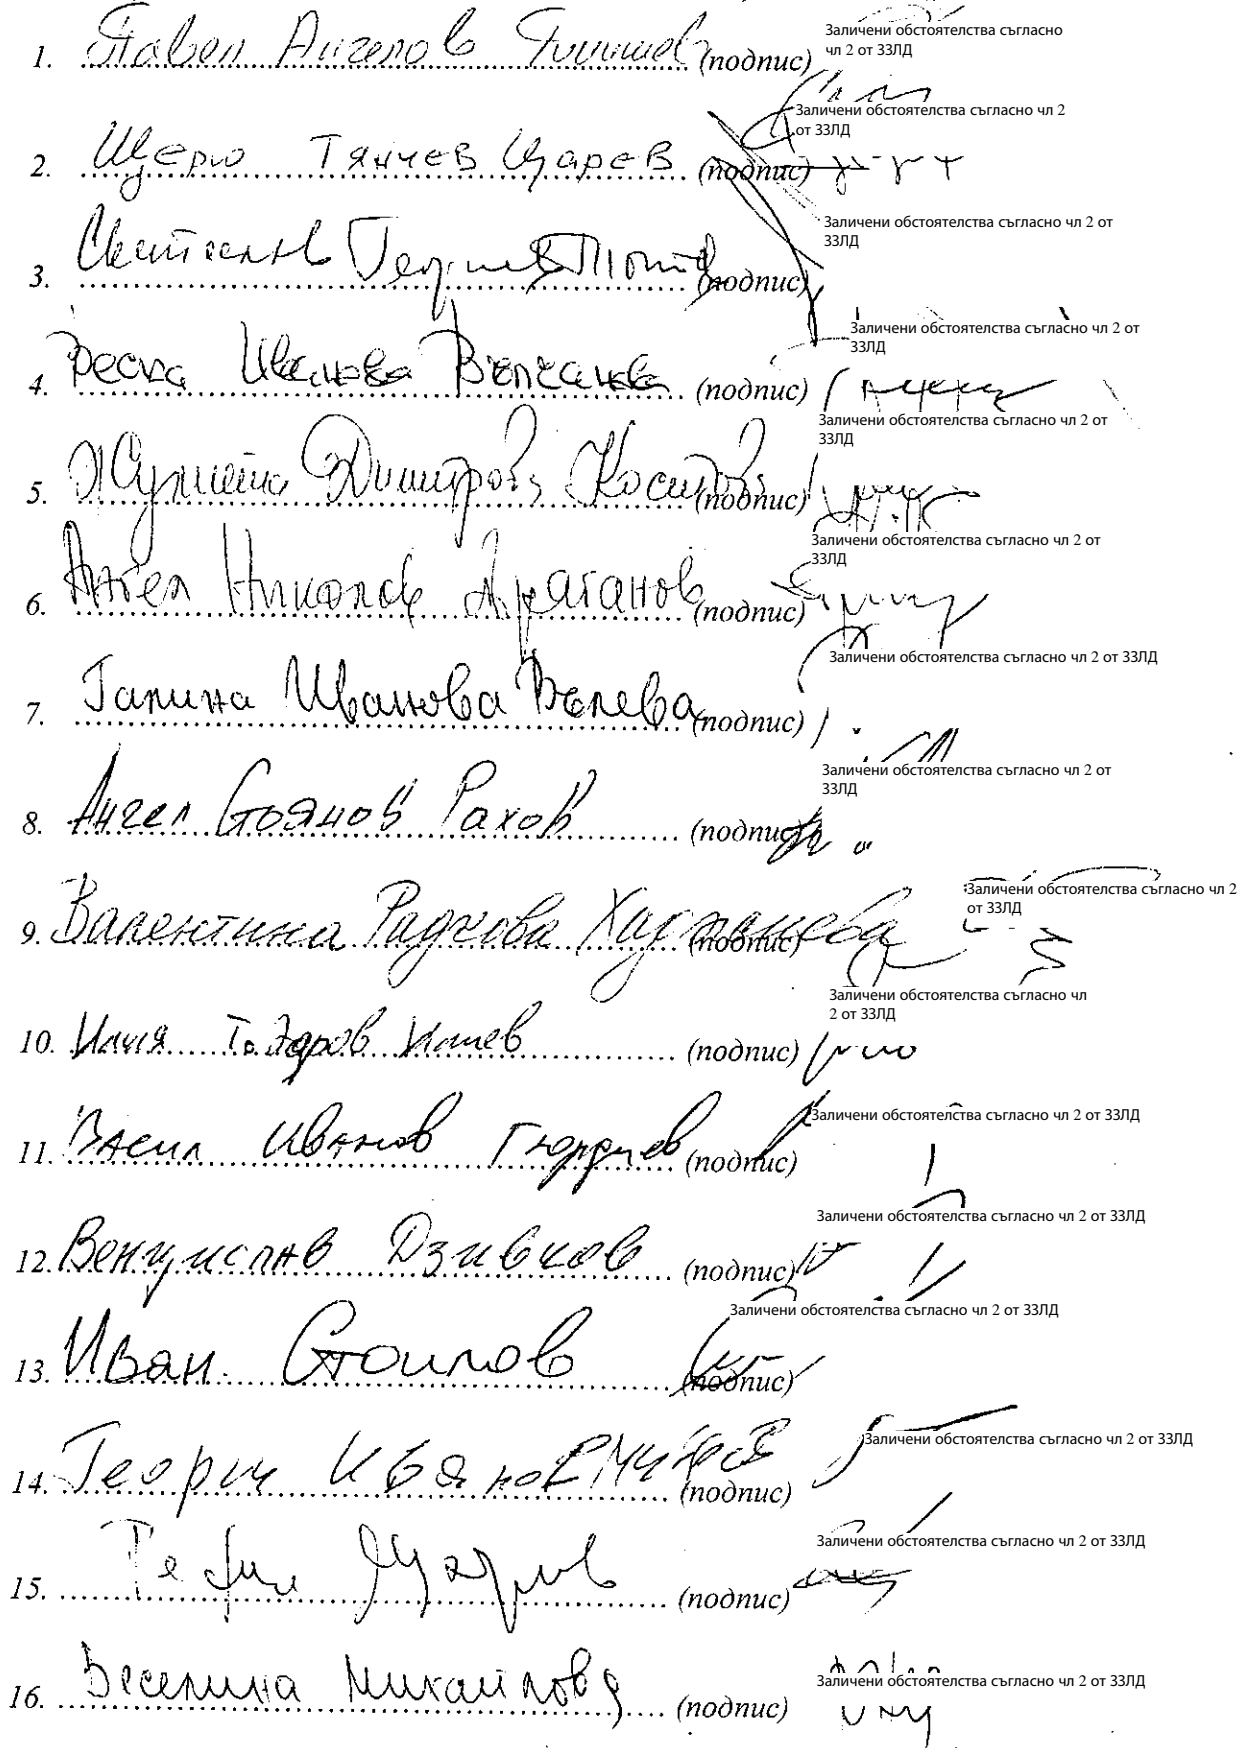 Заличени обстоятелства съгласно
чл 2 от ЗЗЛД
1. Павел Ангелов (подпис)
Заличени обстоятелства съгласно чл 2
от ЗЗЛД
2. Щерю Тянчев Царев (подпис)
Заличени обстоятелства съгласно чл 2 от
ЗЗЛД
3. Георгиев (подпис)
Заличени обстоятелства съгласно чл 2 от
ЗЗЛД
4. Иванова Вълчанова (подпис)
Заличени обстоятелства съгласно чл 2 от
ЗЗЛД
5. Димитрова (подпис)
Заличени обстоятелства съгласно чл 2 от
ЗЗЛД
6. Ангел Николов (подпис)
Заличени обстоятелства съгласно чл 2 от ЗЗЛД
7. Галина Иванова Вълева (подпис)
Заличени обстоятелства съгласно чл 2 от
ЗЗЛД
8. Ангел Стоянов Рахов (подпис)
Заличени обстоятелства съгласно чл 2
от ЗЗЛД
9. Валентина Радкова (подпис)
Заличени обстоятелства съгласно чл
2 от ЗЗЛД
10. Илия Тодоров Илиев (подпис)
Заличени обстоятелства съгласно чл 2 от ЗЗЛД
11. Васил Иванов (подпис)
Заличени обстоятелства съгласно чл 2 от ЗЗЛД
12. Венцислав Дзивков (подпис)
Заличени обстоятелства съгласно чл 2 от ЗЗЛД
13. Иван Стоилов (подпис)
Заличени обстоятелства съгласно чл 2 от ЗЗЛД
14. Георги Иванов (подпис)
Заличени обстоятелства съгласно чл 2 от ЗЗЛД
15. (подпис)
Заличени обстоятелства съгласно чл 2 от ЗЗЛД
16. Веселина Михайлова (подпис)